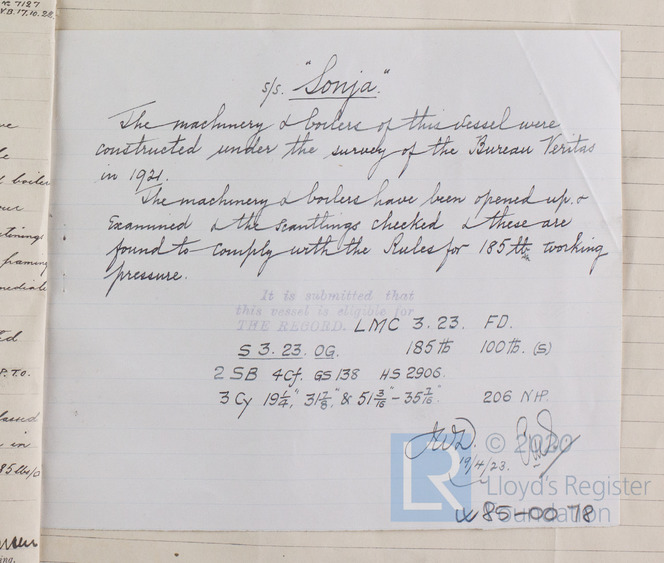 No 7127
V.B. 17.10.22.
s/s. "Sonja."
The machinery & boilers of this vessel were
constructed under the survey of the Bureau Veritas
in 1921.
The machinery & boilers have been opened up &
examined & the scantlings checked & these are
found to comply with the Rules for 185 lb working
pressure.
It is submitted that
this vessel is eligible for
THE RECORD. LMC 3.23. FD.
S 3.23. OG. 185 lb 100 lb. (S)
2 SB 4 Cf. GS 138 HS 2906.
3 Cy 19 1/4", 31 7/8", & 51 3/16" - 35 7/16". 206 NHP.
19/4/23.
© 2020
Lloyd's Register
Foundation
W85-0078
boiler
framing
P.T.O.
in
85 lbs/